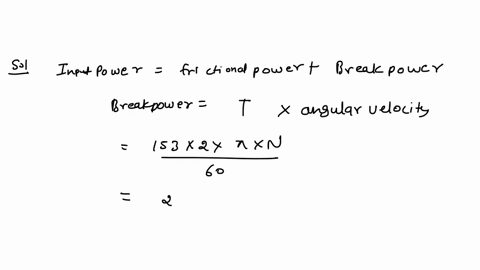 Sol Input Power = frictional power + Break power
Break power = T × angular velocity
= 153 × 2 × π × N
60
= 2